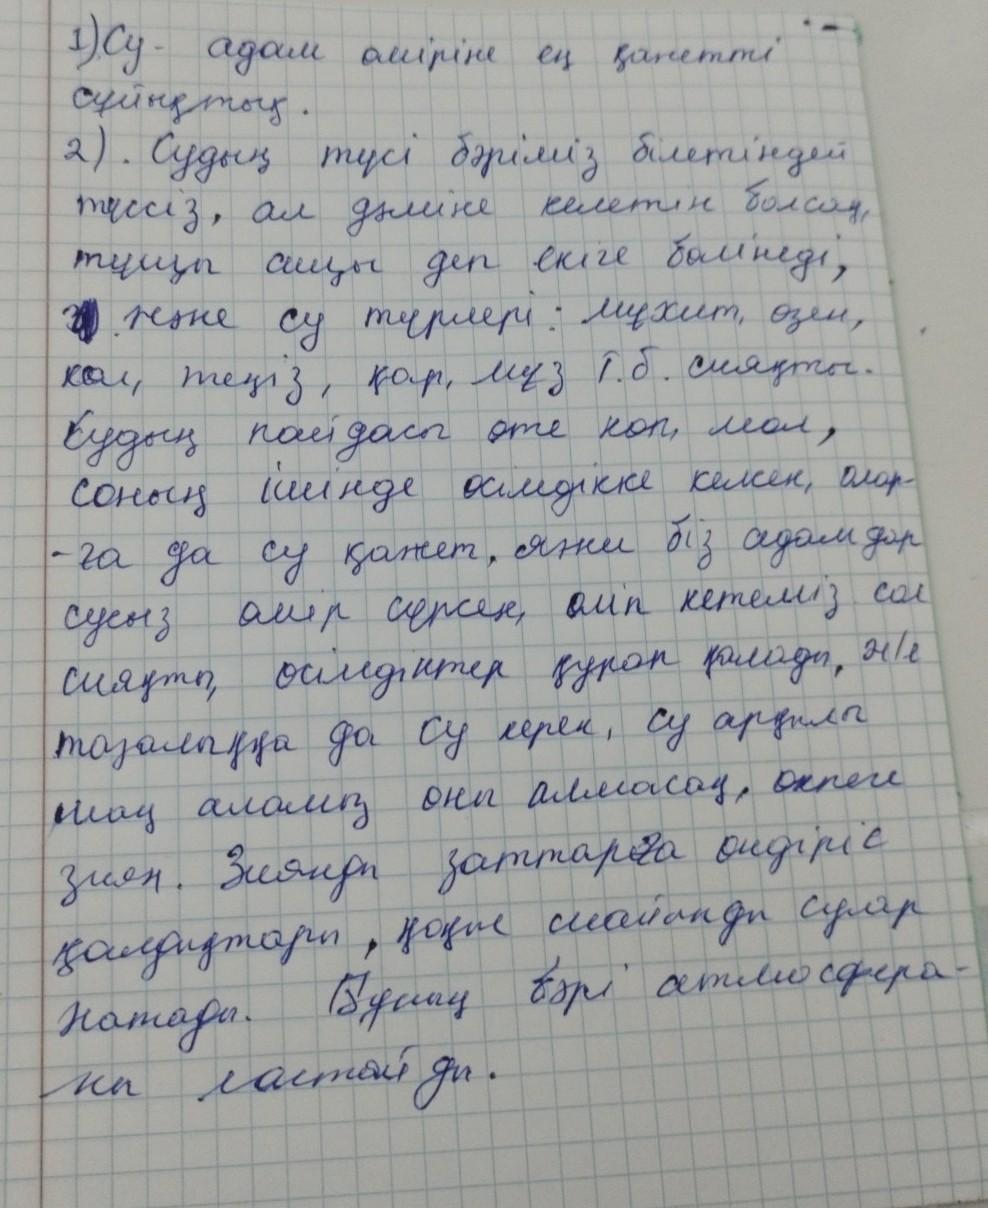 1) Су - адам өміріне ең қажетті
сұйықтық.
2). Судың түсі бәріміз білетіндей
түссіз, ал дәміне келетін болсақ,
тұщы ащы деп екіге бөлінеді,
және су түрлері: мұхит, өзен,
көл, теңіз, қар, мұз т.б. сияқты.
Судың пайдасы өте көп, мол,
соның ішінде өсімдікке келсек, олар-
-ға да су қажет, яғни біз адамдар
сусыз өмір сүрсек, өліп кетеміз сол
сияқты, өсімдіктер қурап қалады, ж/е
тазалыққа да су керек, су арқылы
шаң аламыз оны алмасақ, өкпеге
зиян. Зиянды заттарға өндіріс
қалдықтары, қоқыс шайынды сулар
жатады. Бұның бәрі атмосфера-
ны ластайды.